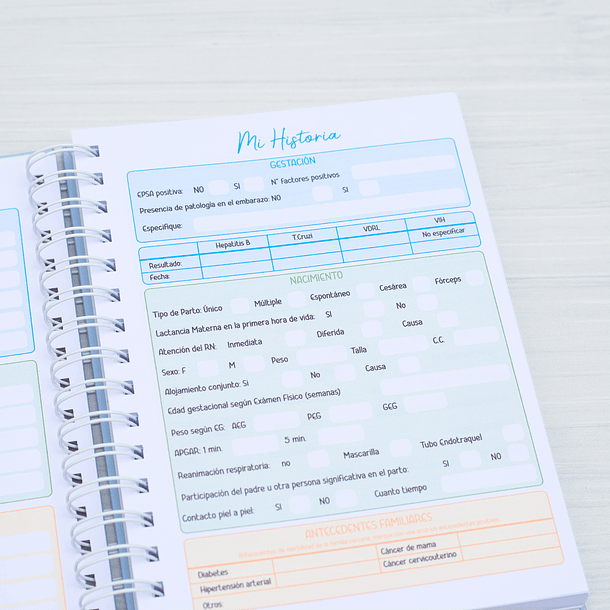 Mi Historia
GESTACIÓN
EPSA positiva: NO SI N° Factores positivos
Presencia de patología en el embarazo: NO SI
Especifique:
Hepatitis B T.Cruzi VDRL VIH
Resultado: No especificar
Fecha:
NACIMIENTO
Tipo de Parto: Único Múltiple Espontáneo Cesárea Fórceps
Lactancia Materna en la primera hora de vida: SI No
Atención del RN: Inmediata Diferida Causa
Sexo: F M Peso Talla C.C.
Alojamiento conjunto: Si No Causa
Edad gestacional según Exámen Físico (semanas)
Peso según EG: AEG PEG GEG
APGAR: 1 min. 5 min.
Reanimación respiratoria: no Mascarilla Tubo Endotraquel
Participación del padre u otra persona significativa en el parto: SI NO
Contacto piel a piel: SI NO Cuanto tiempo
ANTECEDENTES FAMILIARES
Diabetes Cáncer de mama
Hipertensión arterial Cáncer cervicouterino
Otros